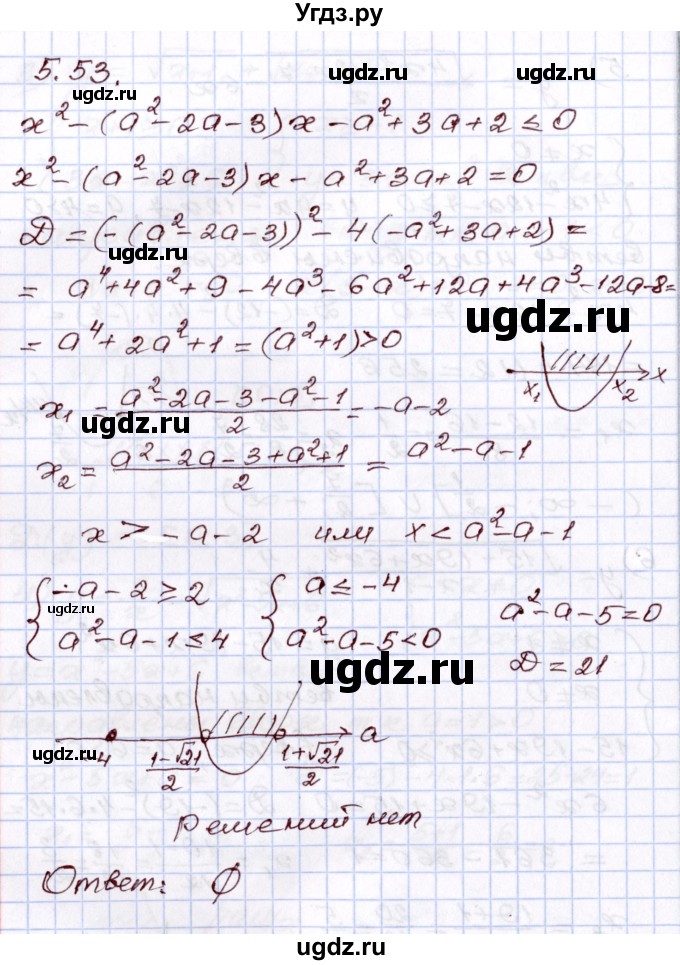 Угдз.ру
5.53.
ugdz.ru ugdz.ru ugdz.ru
x² - (a² - 2a - 3)x - a² + 3a + 2 ≤ 0
x² - (a² - 2a - 3)x - a² + 3a + 2 = 0
D = (-(a² - 2a - 3))² - 4(-a² + 3a + 2) =
= a⁴ + 4a² + 9 - 4a³ - 6a² + 12a + 4a³ - 12a - 8 =
ugdz.ru
= a⁴ + 2a² + 1 = (a² + 1) > 0
x₁ x₂ x
x₁ = (a² - 2a - 3 - a² - 1)/2 = -a - 2
ugdz.ru
x₂ = (a² - 2a - 3 + a² + 1)/2 = a² - a - 1
x > -a - 2 или x < a² - a - 1
{ -a - 2 ≥ 2 { a ≤ -4 a² - a - 5 = 0
ugdz.ru
{ a² - a - 1 ≤ 4 { a² - a - 5 < 0 D = 21
ugdz.ru
ugdz.ru
-4 (1-√21)/2 (1+√21)/2 a
Решений нет
Ответ: ∅
ugdz.ru
ugdz.ru